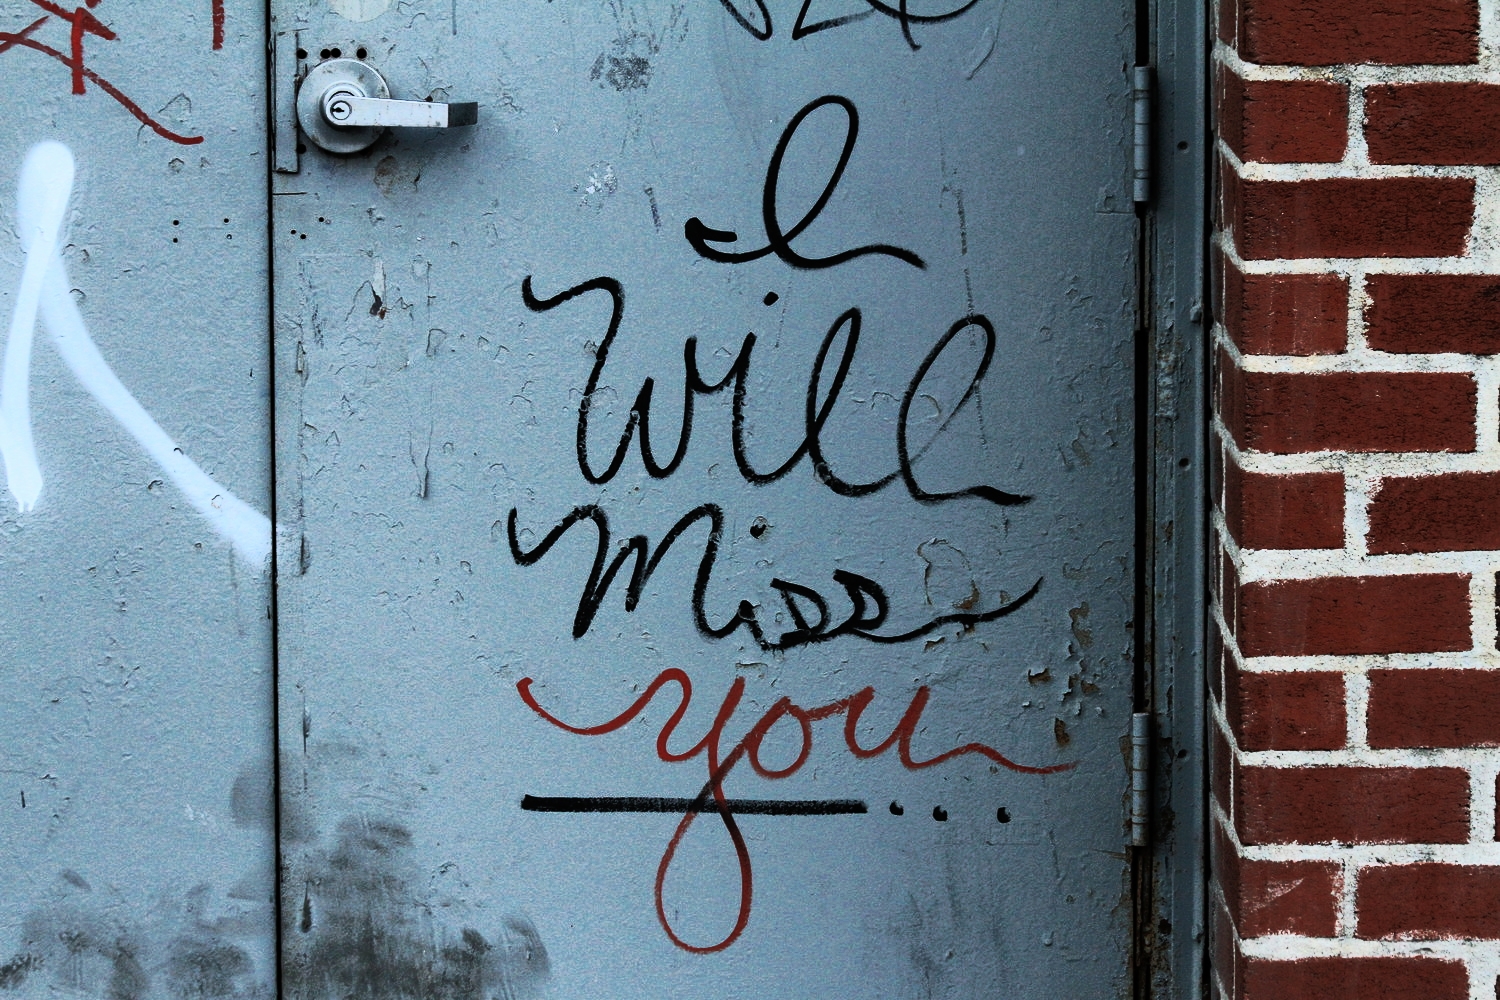 I
Will
Miss
you
....